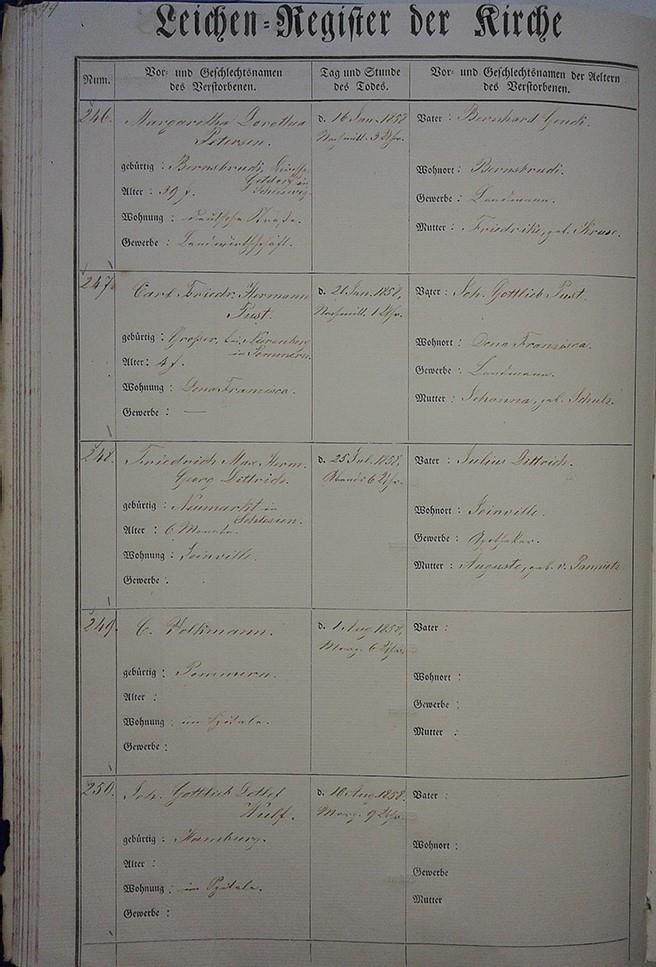 Leichen=Register der Kirche
Num.
Vor= und Geschlechtsnamen
des Verstorbenen.
Tag und Stunde
des Todes.
Vor= und Geschlechtsnamen der Aeltern
des Verstorbenen.
246.
Margaretha Dorothea
Petersen.
gebürtig: Bernsbrudi,
in
Schleswig.
Alter: 39 J.
Wohnung: deutsche Straße.
Gewerbe: Landwirthschaft.
d. 16 Jan. 1858
Nachmitt. 3 Uhr.
Vater: Bernhard
Wohnort: Bernsbrudi.
Gewerbe: Landmann.
Mutter: Friedrike, geb. Kruse.
247.
Carl Friedr. Hermann
Pust.
gebürtig: bei
in Pommern.
Alter: 4 J.
Wohnung: Dona Francisca.
Gewerbe: —
d. 21 Jan. 1858,
Nachmitt. 1 Uhr.
Vater: Joh. Gottlieb Pust.
Wohnort: Dona Francisca.
Gewerbe: Landmann.
Mutter: Johanna, geb. Schulz.
248.
Friedrich Max Herm.
Georg Dittrich.
gebürtig: Neumarkt in
Schlesien.
Alter: 6 Monate.
Wohnung: Joinville.
Gewerbe:
d. 25 Jul. 1858,
Abends 6 Uhr.
Vater: Julius Dittrich.
Wohnort: Joinville.
Gewerbe: Apotheker.
Mutter: Auguste, geb. v.
249.
C. Volkmann.
gebürtig: Pommern.
Alter:
Wohnung: im Spitale.
Gewerbe:
d. 1 Aug. 1858,
Morg. 6 Uhr.
Vater:
Wohnort:
Gewerbe:
Mutter:
250.
Joh. Gottlieb Detlef
Wulf.
gebürtig: Hamburg.
Alter:
Wohnung: im Spitale.
Gewerbe:
d. 16 Aug. 1858.
Morg. 9 Uhr.
Vater:
Wohnort:
Gewerbe
Mutter